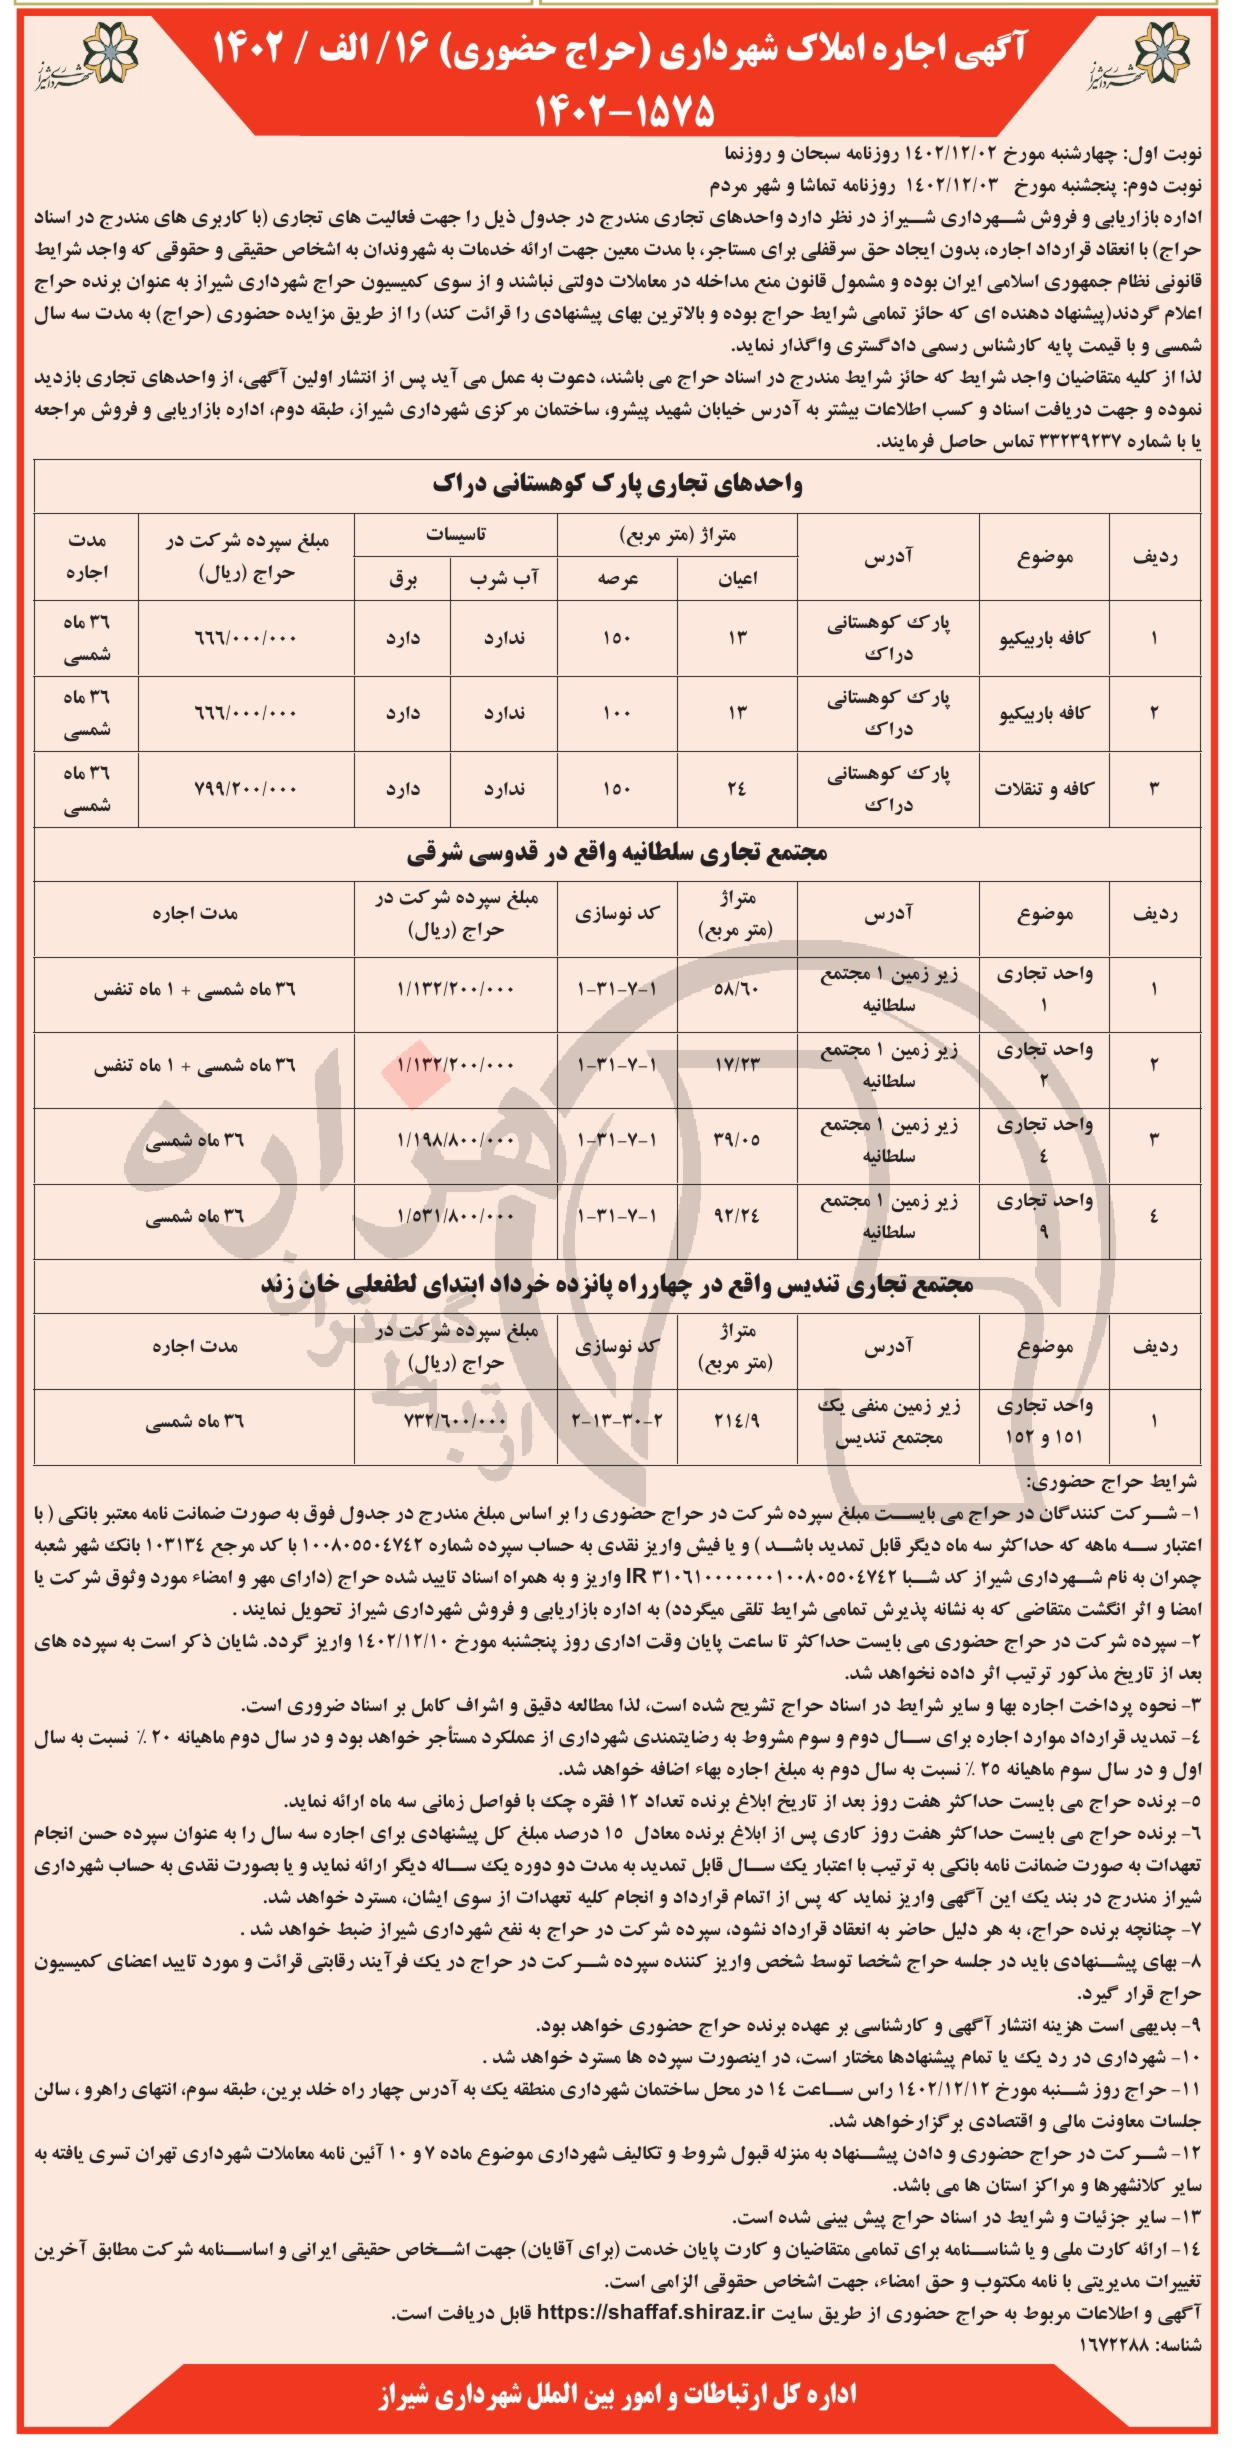 آگهی اجاره املاک شهرداری (حراج حضوری) ۱۶/ الف / ۱۴۰۲
۱۴۰۲-۱۵۷۵
نوبت اول: چهارشنبه مورخ ۱٤۰۲/۱۲/۰۲ روزنامه سبحان و روزنما
نوبت دوم: پنجشنبه مورخ ۱٤۰۲/۱۲/۰۳ روزنامه تماشا و شهر مردم
اداره بازاریابی و فروش شهرداری شیراز در نظر دارد واحدهای تجاری مندرج در جدول ذیل را جهت فعالیت های تجاری (با کاربری های مندرج در اسناد
حراج) با انعقاد قرارداد اجاره، بدون ایجاد حق سرقفلی برای مستاجر، با مدت معین جهت ارائه خدمات به شهروندان به اشخاص حقیقی و حقوقی که واجد شرایط
قانونی نظام جمهوری اسلامی ایران بوده و مشمول قانون منع مداخله در معاملات دولتی نباشند و از سوی کمیسیون حراج شهرداری شیراز به عنوان برنده حراج
اعلام گردند(پیشنهاد دهنده ای که حائز تمامی شرایط حراج بوده و بالاترین بهای پیشنهادی را قرائت کند) را از طریق مزایده حضوری (حراج) به مدت سه سال
شمسی و با قیمت پایه کارشناس رسمی دادگستری واگذار نماید.
لذا از کلیه متقاضیان واجد شرایط که حائز شرایط مندرج در اسناد حراج می باشند، دعوت به عمل می آید پس از انتشار اولین آگهی، از واحدهای تجاری بازدید
نموده و جهت دریافت اسناد و کسب اطلاعات بیشتر به آدرس خیابان شهید پیشرو، ساختمان مرکزی شهرداری شیراز، طبقه دوم، اداره بازاریابی و فروش مراجعه
یا با شماره ۳۳۲۳۹۲۳۷ تماس حاصل فرمایند.
واحدهای تجاری پارک کوهستانی دراک
ردیف موضوع آدرس متراژ (متر مربع) تاسیسات مبلغ سپرده شرکت در حراج (ریال) مدت اجاره
اعیان عرصه آب شرب برق
۱ کافه باربیکیو پارک کوهستانی دراک ۱۳ ۱۵۰ ندارد دارد ٦٦٦/۰۰۰/۰۰۰ ۳٦ ماه شمسی
۲ کافه باربیکیو پارک کوهستانی دراک ۱۳ ۱۰۰ ندارد دارد ٦٦٦/۰۰۰/۰۰۰ ۳٦ ماه شمسی
۳ کافه و تنقلات پارک کوهستانی دراک ۲٤ ۱۵۰ ندارد دارد ۷۹۹/۲۰۰/۰۰۰ ۳٦ ماه شمسی
مجتمع تجاری سلطانیه واقع در قدوسی شرقی
ردیف موضوع آدرس متراژ (متر مربع) کد نوسازی مبلغ سپرده شرکت در حراج (ریال) مدت اجاره
۱ واحد تجاری ۱ زیر زمین ۱ مجتمع سلطانیه ۵۸/٦۰ ۱-۳۱-۷-۱ ۱/۱۳۲/۲۰۰/۰۰۰ ۳٦ ماه شمسی + ۱ ماه تنفس
۲ واحد تجاری ۲ زیر زمین ۱ مجتمع سلطانیه ۱۷/۲۳ ۱-۳۱-۷-۱ ۱/۱۳۲/۲۰۰/۰۰۰ ۳٦ ماه شمسی + ۱ ماه تنفس
۳ واحد تجاری ٤ زیر زمین ۱ مجتمع سلطانیه ۳۹/۰۵ ۱-۳۱-۷-۱ ۱/۱۹۸/۸۰۰/۰۰۰ ۳٦ ماه شمسی
٤ واحد تجاری ۹ زیر زمین ۱ مجتمع سلطانیه ۹۲/۲٤ ۱-۳۱-۷-۱ ۱/۵۳۱/۸۰۰/۰۰۰ ۳٦ ماه شمسی
مجتمع تجاری تندیس واقع در چهارراه پانزده خرداد ابتدای لطفعلی خان زند
ردیف موضوع آدرس متراژ (متر مربع) کد نوسازی مبلغ سپرده شرکت در حراج (ریال) مدت اجاره
۱ واحد تجاری ۱۵۱ و ۱۵۲ زیر زمین منفی یک مجتمع تندیس ۲۱٤/۹ ۲-۱۳-۳۰-۲ ۷۳۲/٦۰۰/۰۰۰ ۳٦ ماه شمسی
شرایط حراج حضوری:
۱- شرکت کنندگان در حراج می بایست مبلغ سپرده شرکت در حراج حضوری را بر اساس مبلغ مندرج در جدول فوق به صورت ضمانت نامه معتبر بانکی ( با
اعتبار سه ماهه که حداکثر سه ماه دیگر قابل تمدید باشد ) و یا فیش واریز نقدی به حساب سپرده شماره ۱۰۰۸۰۵۵۰٤۷٤۲ با کد مرجع ۱۰۳۱۳٤ بانک شهر شعبه
چمران به نام شهرداری شیراز کد شبا IR ۳۱۰٦۱۰۰۰۰۰۰۰۱۰۰۸۰۵۵۰٤۷٤۲ واریز و به همراه اسناد تایید شده حراج (دارای مهر و امضاء مورد وثوق شرکت یا
امضا و اثر انگشت متقاضی که به نشانه پذیرش تمامی شرایط تلقی میگردد) به اداره بازاریابی و فروش شهرداری شیراز تحویل نمایند .
۲- سپرده شرکت در حراج حضوری می بایست حداکثر تا ساعت پایان وقت اداری روز پنجشنبه مورخ ۱٤۰۲/۱۲/۱۰ واریز گردد. شایان ذکر است به سپرده های
بعد از تاریخ مذکور ترتیب اثر داده نخواهد شد.
۳- نحوه پرداخت اجاره بها و سایر شرایط در اسناد حراج تشریح شده است، لذا مطالعه دقیق و اشراف کامل بر اسناد ضروری است.
٤- تمدید قرارداد موارد اجاره برای سال دوم و سوم مشروط به رضایتمندی شهرداری از عملکرد مستأجر خواهد بود و در سال دوم ماهیانه ۲۰ ٪ نسبت به سال
اول و در سال سوم ماهیانه ۲۵ ٪ نسبت به سال دوم به مبلغ اجاره بهاء اضافه خواهد شد.
۵- برنده حراج می بایست حداکثر هفت روز بعد از تاریخ ابلاغ برنده تعداد ۱۲ فقره چک با فواصل زمانی سه ماه ارائه نماید.
٦- برنده حراج می بایست حداکثر هفت روز کاری پس از ابلاغ برنده معادل ۱۵ درصد مبلغ کل پیشنهادی برای اجاره سه سال را به عنوان سپرده حسن انجام
تعهدات به صورت ضمانت نامه بانکی به ترتیب با اعتبار یک سال قابل تمدید به مدت دو دوره یک ساله دیگر ارائه نماید و یا بصورت نقدی به حساب شهرداری
شیراز مندرج در بند یک این آگهی واریز نماید که پس از اتمام قرارداد و انجام کلیه تعهدات از سوی ایشان، مسترد خواهد شد.
۷- چنانچه برنده حراج، به هر دلیل حاضر به انعقاد قرارداد نشود، سپرده شرکت در حراج به نفع شهرداری شیراز ضبط خواهد شد .
۸- بهای پیشنهادی باید در جلسه حراج شخصا توسط شخص واریز کننده سپرده شرکت در حراج در یک فرآیند رقابتی قرائت و مورد تایید اعضای کمیسیون
حراج قرار گیرد.
۹- بدیهی است هزینه انتشار آگهی و کارشناسی بر عهده برنده حراج حضوری خواهد بود.
۱۰- شهرداری در رد یک یا تمام پیشنهادها مختار است، در اینصورت سپرده ها مسترد خواهد شد .
۱۱- حراج روز شنبه مورخ ۱٤۰۲/۱۲/۱۲ راس ساعت ۱٤ در محل ساختمان شهرداری منطقه یک به آدرس چهار راه خلد برین، طبقه سوم، انتهای راهرو ، سالن
جلسات معاونت مالی و اقتصادی برگزارخواهد شد.
۱۲- شرکت در حراج حضوری و دادن پیشنهاد به منزله قبول شروط و تکالیف شهرداری موضوع ماده ۷ و ۱۰ آئین نامه معاملات شهرداری تهران تسری یافته به
سایر کلانشهرها و مراکز استان ها می باشد.
۱۳- سایر جزئیات و شرایط در اسناد حراج پیش بینی شده است.
۱٤- ارائه کارت ملی و یا شناسنامه برای تمامی متقاضیان و کارت پایان خدمت (برای آقایان) جهت اشخاص حقیقی ایرانی و اساسنامه شرکت مطابق آخرین
تغییرات مدیریتی با نامه مکتوب و حق امضاء، جهت اشخاص حقوقی الزامی است.
آگهی و اطلاعات مربوط به حراج حضوری از طریق سایت https://shaffaf.shiraz.ir قابل دریافت است.
شناسه: ۱٦۷۲۲۸۸
اداره کل ارتباطات و امور بین الملل شهرداری شیراز
شهرداری شیراز
شهرداری شیراز
هزاره
ارتباط گستران